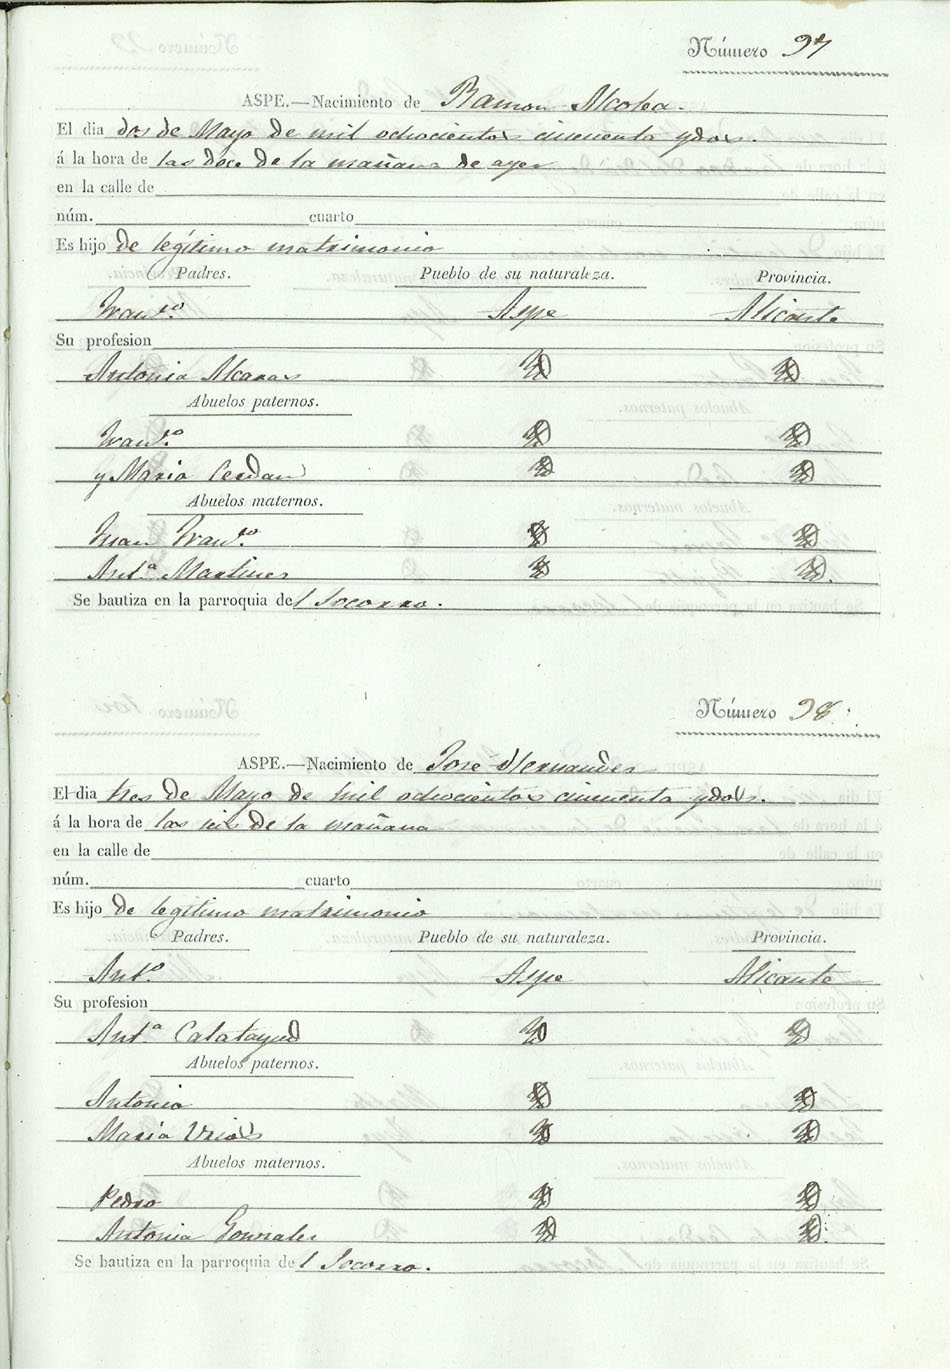 Número 97
ASPE.—Nacimiento de Ramon Alcolea.
El dia dos de Mayo de mil ochocientos cincuenta y dos.
á la hora de las doce de la mañana de ayer
en la calle de
núm. cuarto
Es hijo de legítimo matrimonio
Padres. Pueblo de su naturaleza. Provincia.
Franco. Aspe Alicante
Su profesion
Antonia Alcaras
Abuelos paternos.
Franco.
y Maria Cerdan
Abuelos maternos.
Juan Franco.
Anta. Martines
Se bautiza en la parroquia del Socorro.
Número 98.
ASPE.—Nacimiento de José Hernandes
El dia tres de Mayo de mil ochocientos cincuenta y dos.
á la hora de las seis de la mañana
en la calle de
núm. cuarto
Es hijo de legitimo matrimonio
Padres. Pueblo de su naturaleza. Provincia.
Anto. Aspe Alicante
Su profesion
Anta. Calatayud
Abuelos paternos.
Antonio
Maria
Abuelos maternos.
Pedro
Antonia Gonzales
Se bautiza en la parroquia del Socorro.